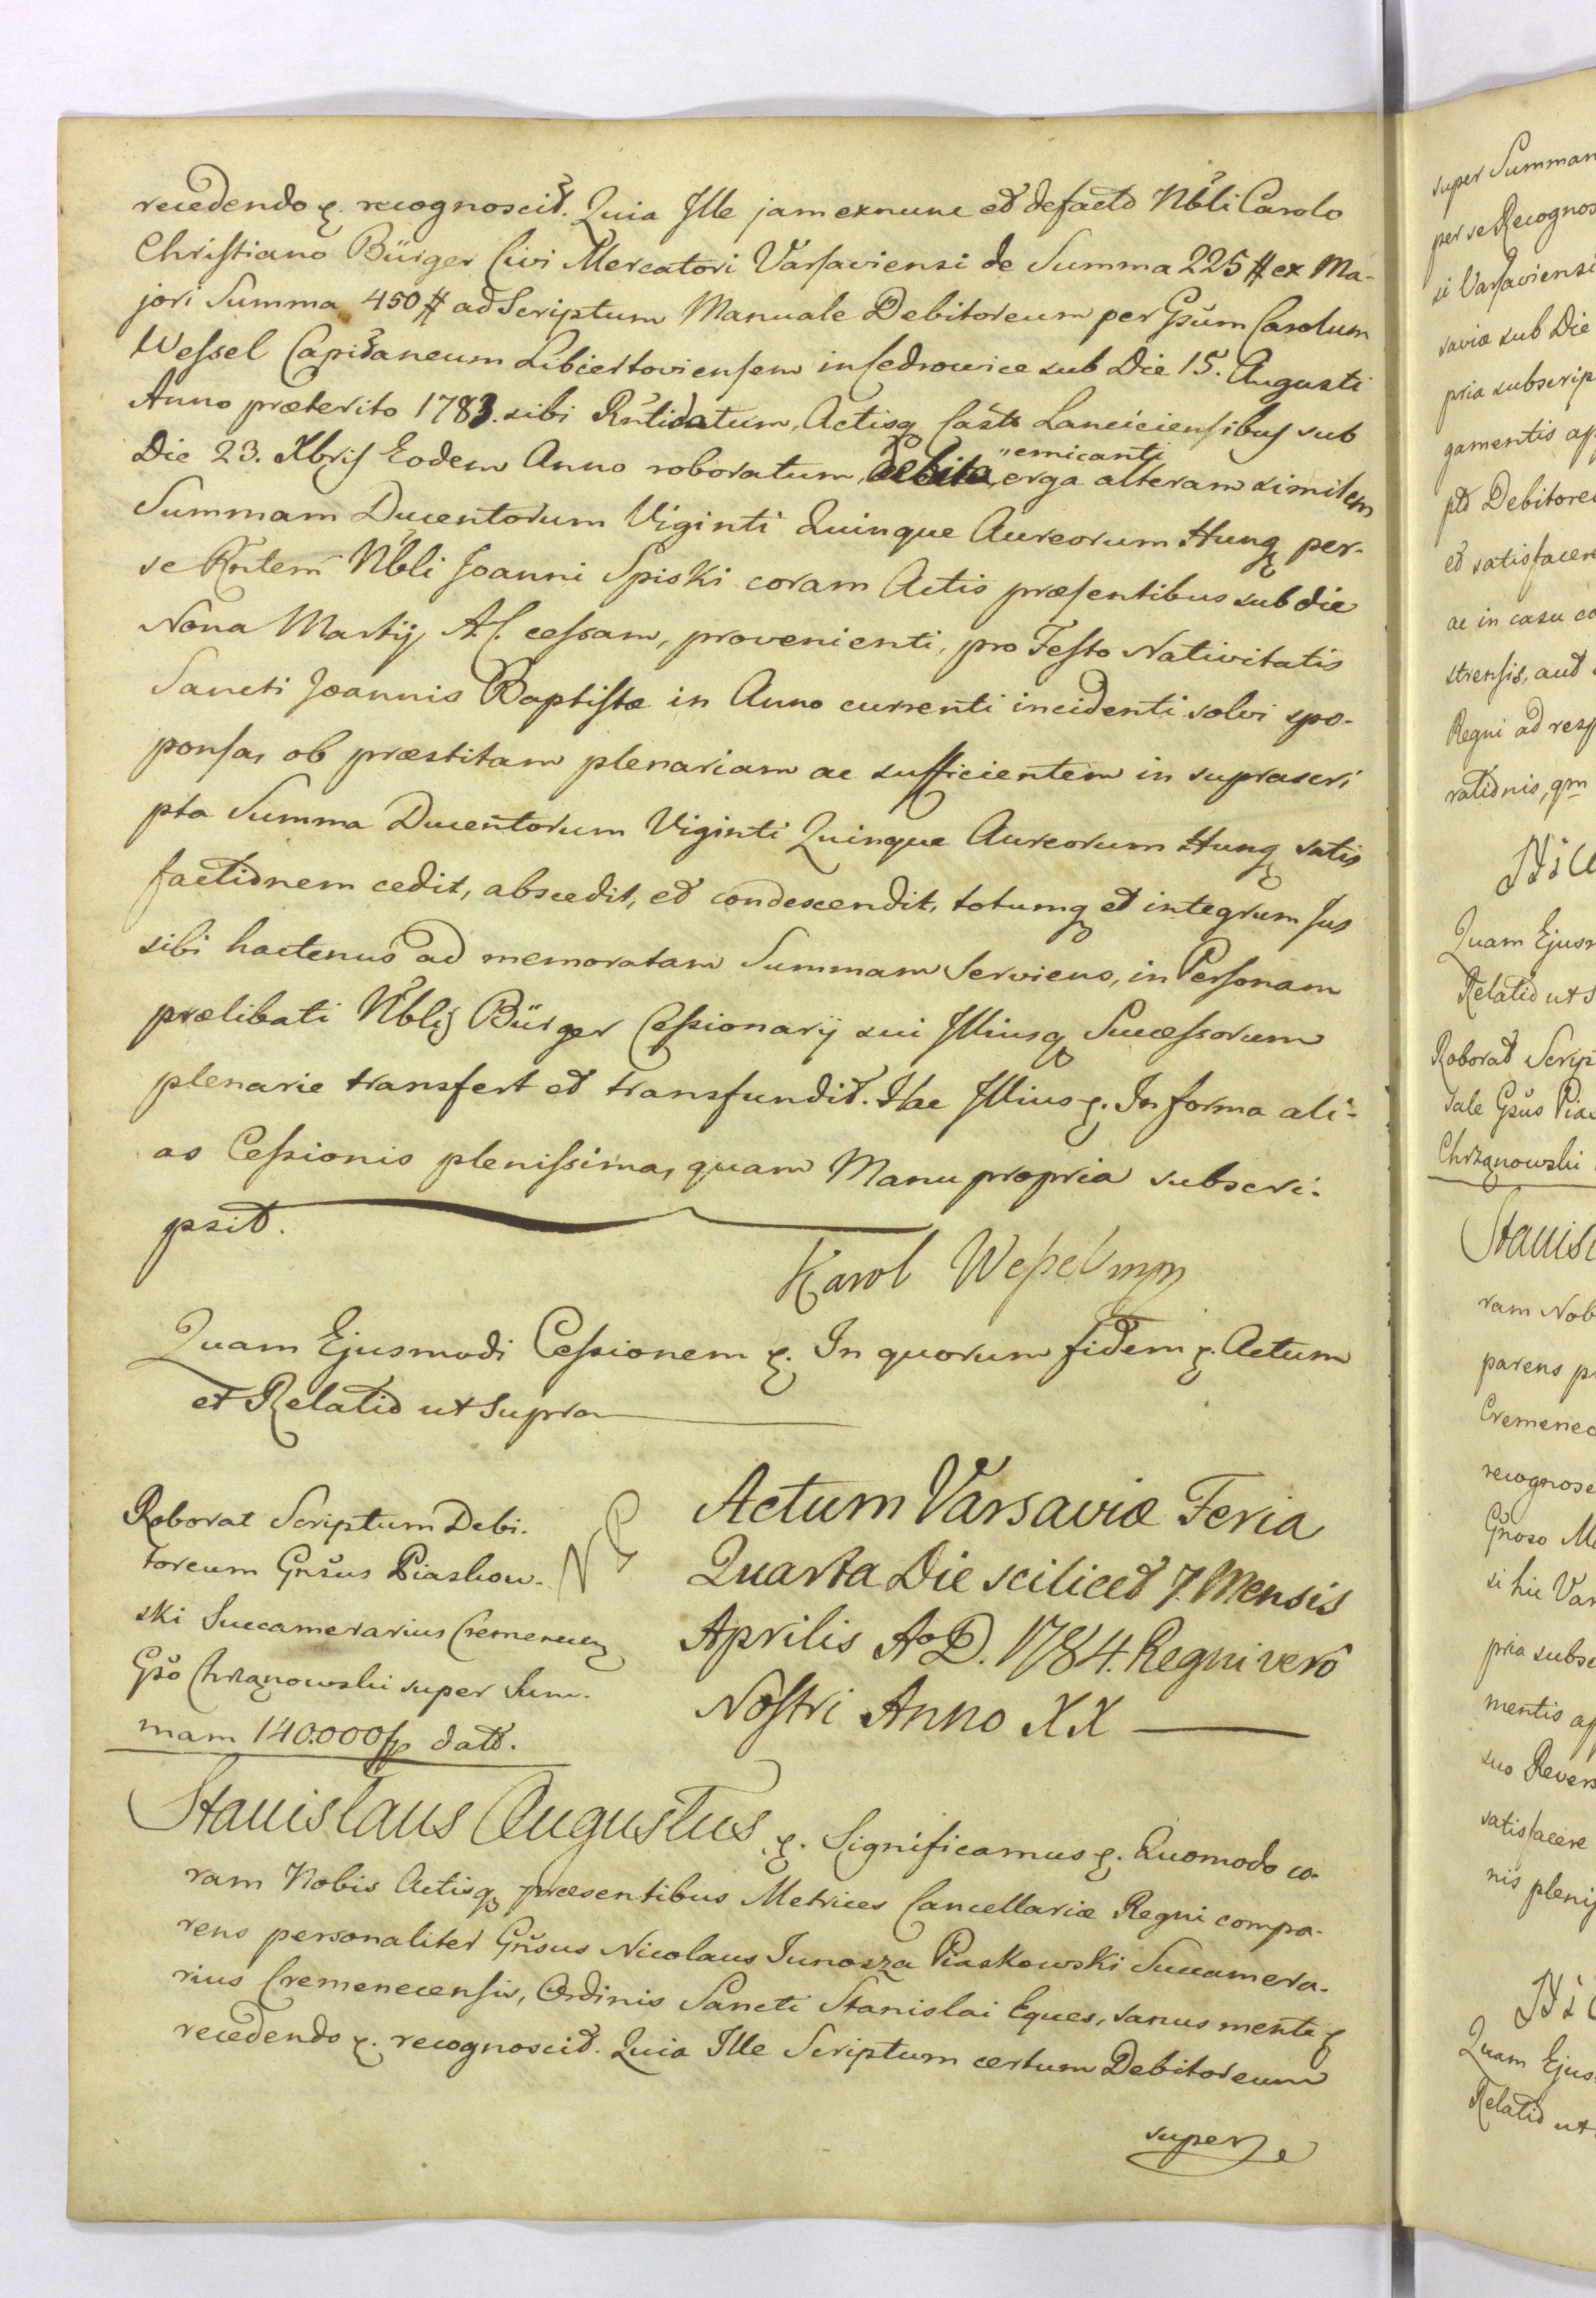 recedendo &. recognoscit. Quia Ille jam exnunc et defacto Nbli Carolo
Christiano Bürger Civi Mercatori Varsaviensi de Summa 225 # ex Ma-
jori Summa 450 # ad Scriptum Manuale Debitoreum per Gsum Carolum
Wessel Capitaneum
Anno præterito 1783. sibi Actisq Castr Lanciciensibus sub
Die 23. Xbris Eodem Anno roboratum, "emicanti erga alteram similem
Summam Ducentorum Viginti Quinque Aureorum Hung per-
se Rntem Nbli Joanni Spiski coram Actis præsentibus sub die
Nona Martij A.C. cessam, provenienti, pro Festo Nativitatis
Sancti Joannis Baptistæ in Anno currenti incidenti solvi spo-
ponsa, ob præstitam plenariam ac sufficientem in suprascri
pta Summa Ducentorum Viginti Quinque Aureorum Hung satis
factionem cedit, abscedit, et condescendit, totumq et integrum Jus
sibi hactenus ad memoratam Summam Serviens, in Personam
prælibati Nblis Bürger Cessionarij sui Illiusq Successorum
plenarie transfert et transfundit. Hac Illius &. In forma ali-
as Cessionis plenissima, quam Manu propria subscri-
psit.
Karol Wessel mp
Quam Ejusmodi Cessionem &. In quorum fidem &. Actum
et Relatio ut supra
Roborat Scriptum Debi-
toreum Gnsus Piaskow-
ski Succamerarius Cremenecen
Gso Chrzanowski super Sum-
mam 140.000 fp datt.
Actum Varsaviæ Feria
Quarta Die scilicet 7. Mensis
Aprilis AoD. 1784. Regni vero
Nostri Anno XX
Stanislaus Augustus &. Significamus &. Quomodo co-
ram Nobis Actisq præsentibus Metrices Cancellariæ Regni compa-
rens personaliter Gnsus Nicolaus Junosza Piaskowski Succamera-
rius Cremenecensis, Ordinis Sancti Stanislai Eques, sanus mente &
recedendo &. recognoscit. Quia Ille Scriptum certum Debitoreum
super
super Summam
per se Recognos
si Varsaviensi
saviæ sub Die
pria subscrip
gamentis ap
ptt Debitore
et satisfacere
ac in casu co
strensis, aut
Regni ad resp
rationis, qm
Hic
Quam Ejusm
Relatio ut S
Roborat Scrip
tale Gsus Pias
Chrzanowski
Stanisl
ram Nob
parens p
Cremenec
recognosc
Gnoso M
si hic Var
pria subsc
mentis ap
suo Revers
satisfacere
nis pleniss
Hic
Quam Ejus
Relatio ut